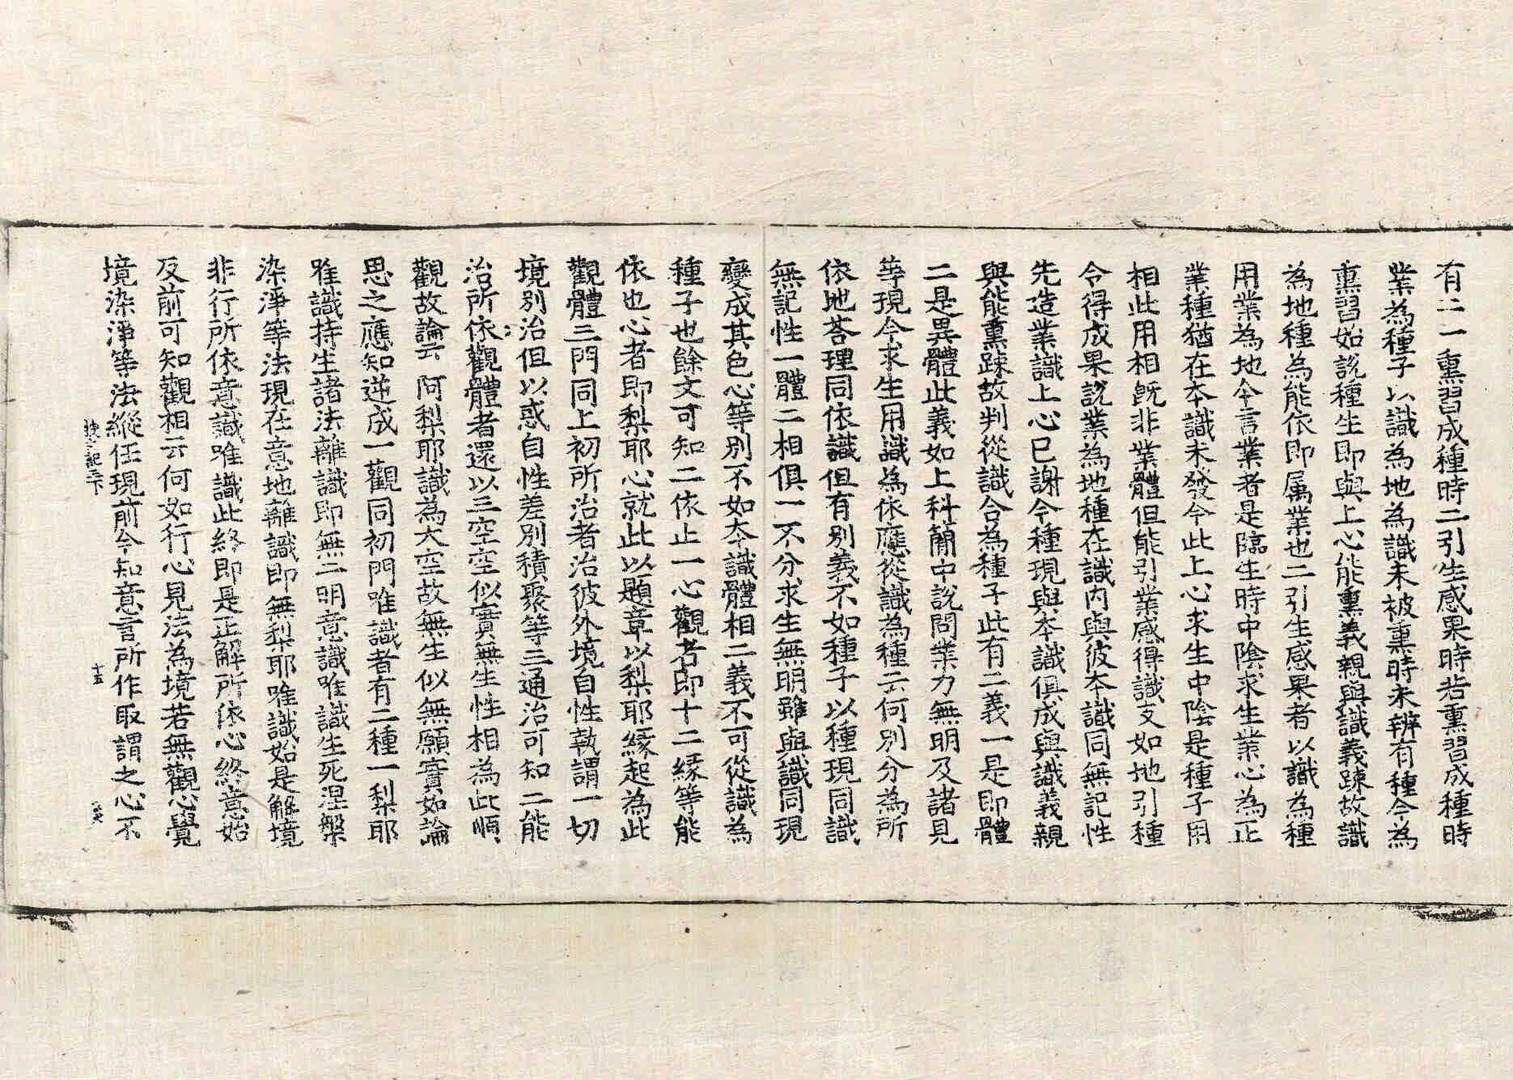 有二一熏習成種時二引生感果時若熏習成種時
業為種子以識為地為識未被熏時未辨有種今為
熏習始說種生即與上心能熏義親與識義踈故識
為地種為能依即属業也二引生感果者以識為種
用業為地今言業者是臨生時中陰求生業心為正
業種猶在本識未發今此上心求生中陰是種子用
相此用相旣非業體但能引業感得識支如地引種
令得成果說業為地種在識內與彼本識同無記性
先造業識上心已謝今種現與本識俱成與識義親
與能熏踈故判從識合為種子此有二義一是即體
二是異體此義如上科蕳中說問業力無明及諸見
等現今求生用識為依應從識為種云何別分為所
依地荅理同依識但有別義不如種子以種現同識
無記性一體二相俱一不分求生無明雖與識同現
變成其色心等別不如本識體相二義不可從識為
種子也餘文可知二依止一心觀者即十二緣等能
依也心者即梨耶心就此以題章以梨耶緣起為此
觀體三門同上初所治者治彼外境自性執謂一切
境別治但以惑自性差別積聚等三通治可知二能
治所依觀體者還以三空空似實無生性相為此順
觀故論云阿梨耶識為大空故無生似無願實如論
思之應知逆成一觀同初門唯識者有二種一梨耶
唯識持生諸法離識即無二明意識唯識生死涅槃
染淨等法現在意地離識即無梨耶唯識始是解境
非行所依意識唯識此終即是正解所依心終意始
反前可知觀相云何如行心見法為境若無觀心覺
境染淨等法縱任現前今知意言所作取謂之心不
十五